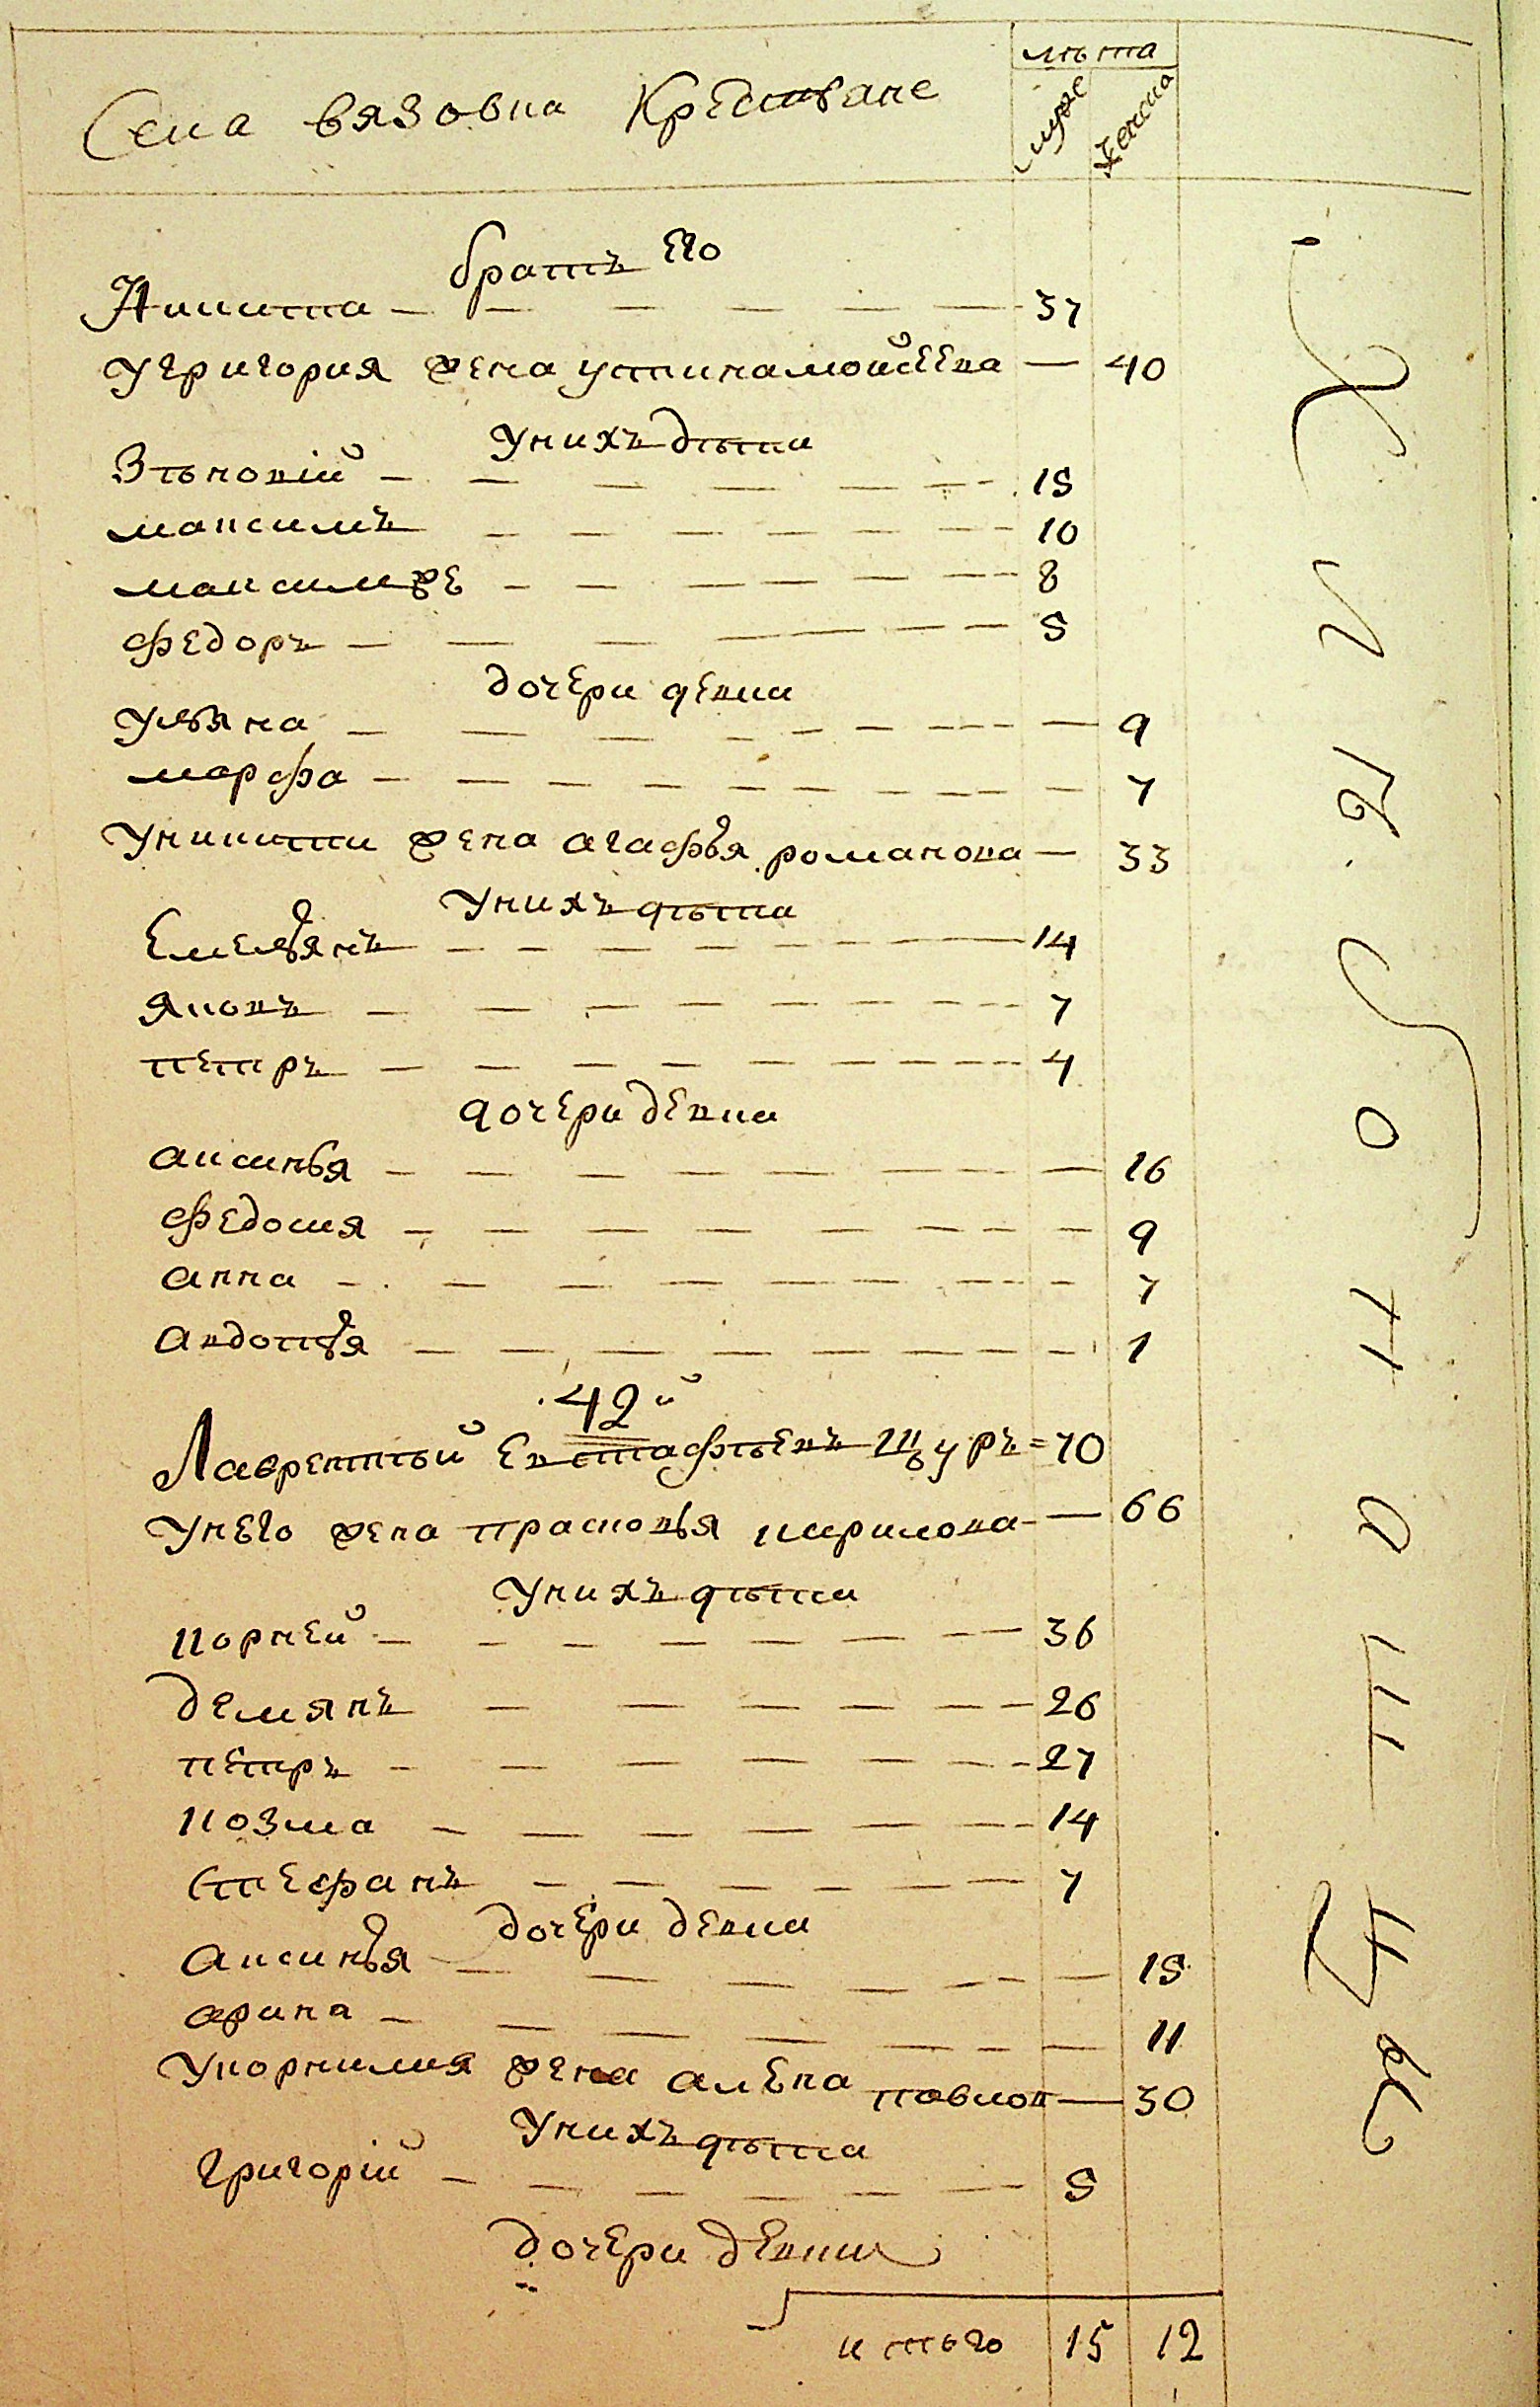 Села вязовка Крестьяне
лѣта
муже
женска
братъ Его
Никита — 37
Угригория жена устинамойсеева — 40
Унихъ дѣти
Зѣновiй — 15
максимъ — 10
максимже — 8
федоръ — 5
дочери девки
Ульяна — 9
марфа — 7
Уникити жена агафья романова — 33
Унихъ дѣти
Емельянъ — 14
яковъ — 7
петръ — 4
дочери девки
аксинья — 16
федосия — 9
анна — 7
авдотья — 1
42й
Лаврентѣй Евстафѣевъ Щуръ = 70
Унего жена прасковья кирилова — 66
Унихъ дѣти
корней — 36
демянъ — 26
петръ — 27
козма — 14
Стефанъ — 7
дочери девки
аксинья — 15
арина — 11
Укорнилия жена алена павлов — 30
Унихъ дѣти
Григорiй — 5
дочери девки
итого 15 12